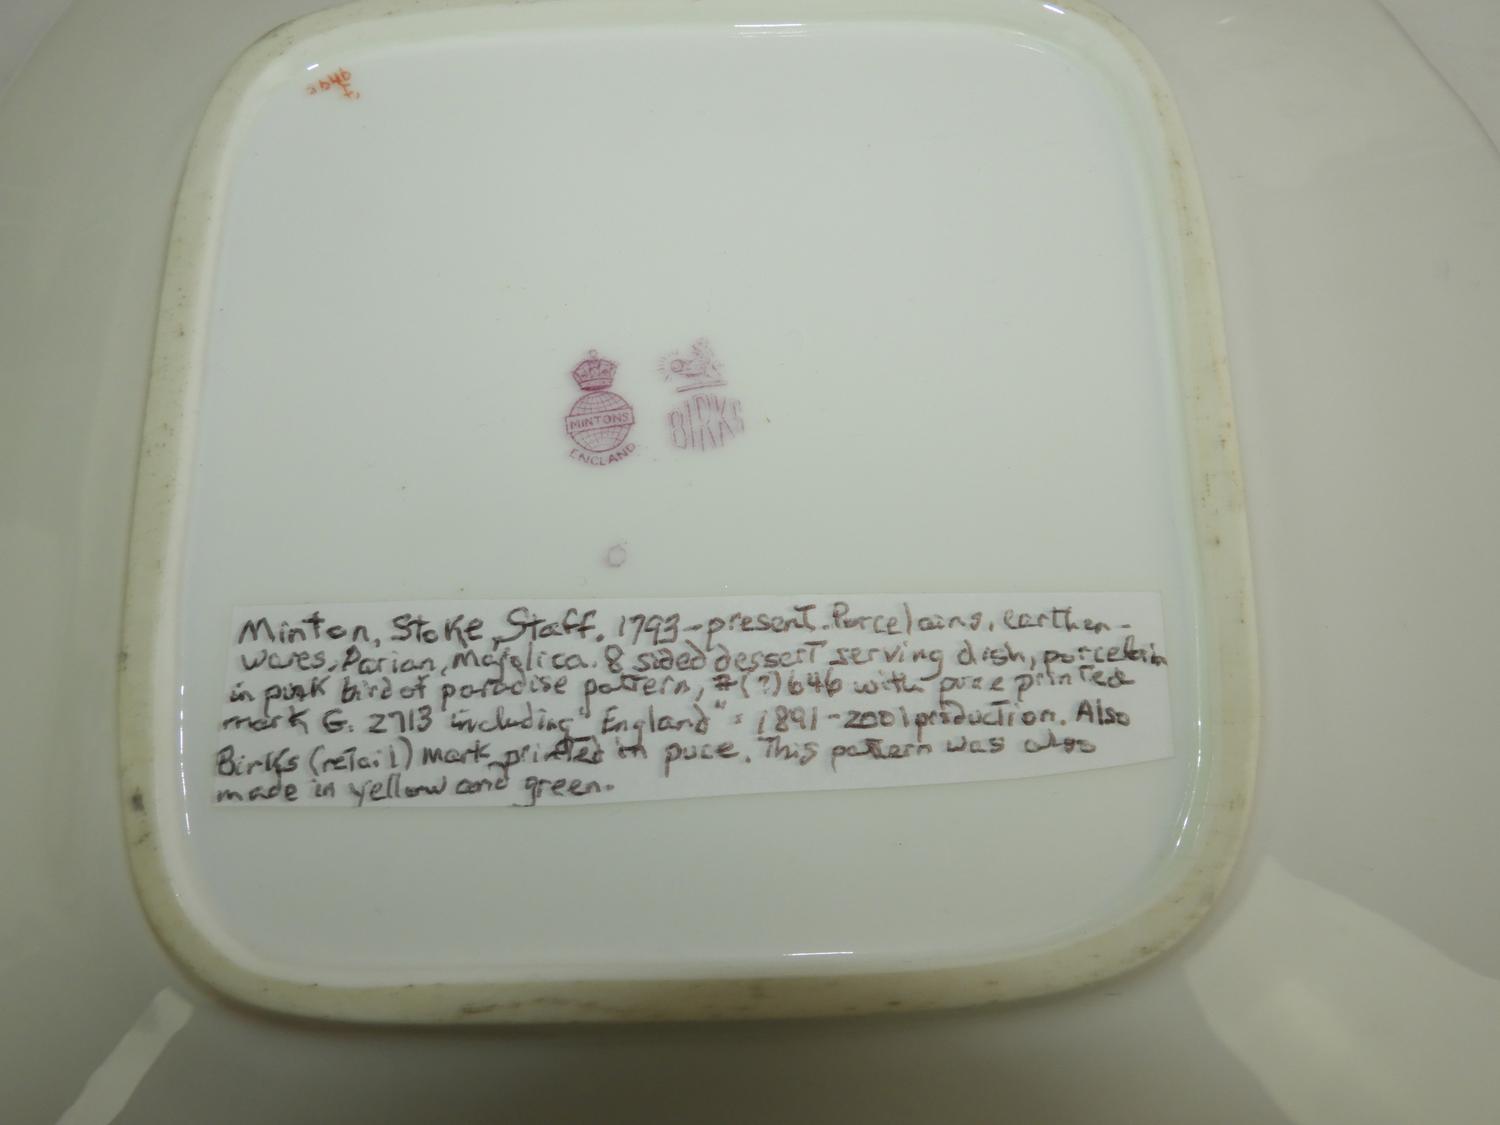 MINTONS
ENGLAND
BIRKS
Minton, Stoke, Staff. 1793-present. Porcelains, earthen-
wares, Parian, Majolica. 8 sided dessert serving dish, porcelain
in pink bird of paradise pattern, #(?)646 with puce printed
mark G. 2713 including "England" = 1891-2001 production. Also
Birks (retail) mark printed in puce. This pattern was also
made in yellow and green.